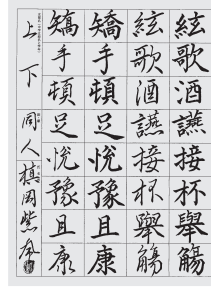 絃歌酒讌接杯舉觴
絃歌酒讌接杯舉觴
矯手頓足悅豫且康
矯手頓足悅豫且康
上下
同人